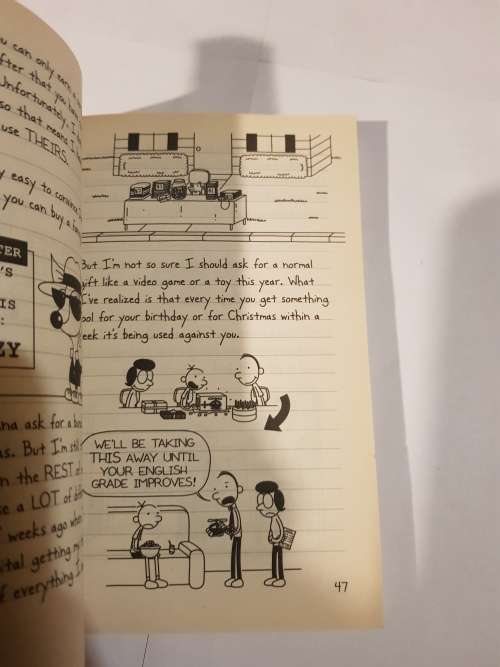 u can only earn
fter that you
Unfortunately, I
so that means
use THEIRS.
easy to convince
you can buy a
TER
'S
IS
:
ZY
na ask for a
as. But I'm still
n the REST
se a LOT of
weeks ago when
ital getting my
f everything I
But I'm not so sure I should ask for a normal
gift like a video game or a toy this year. What
I've realized is that every time you get something
ool for your birthday or for Christmas within a
eek it's being used against you.
WE'LL BE TAKING
THIS AWAY UNTIL
YOUR ENGLISH
GRADE IMPROVES!
47